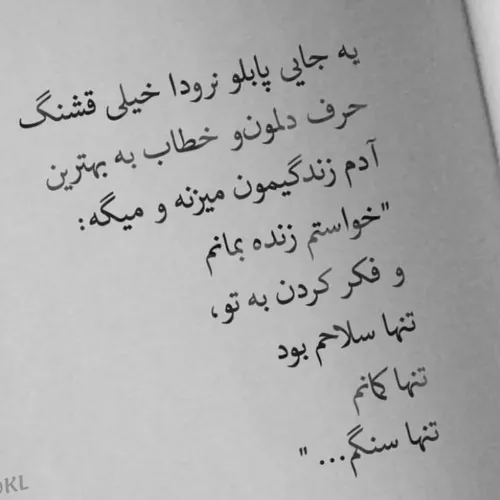 یه جایی پابلو نرودا خیلی قشنگ
حرف دلمون‌و خطاب به بهترین
آدم زندگیمون میزنه و میگه:
"خواستم زنده بمانم
و فکر کردن به تو،
تنها سلاحم بود
تنها کمانم
تنها سنگم... "